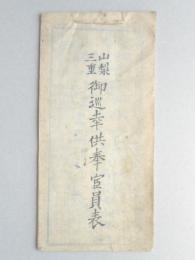 山梨
三重
御巡幸供奉宦員表